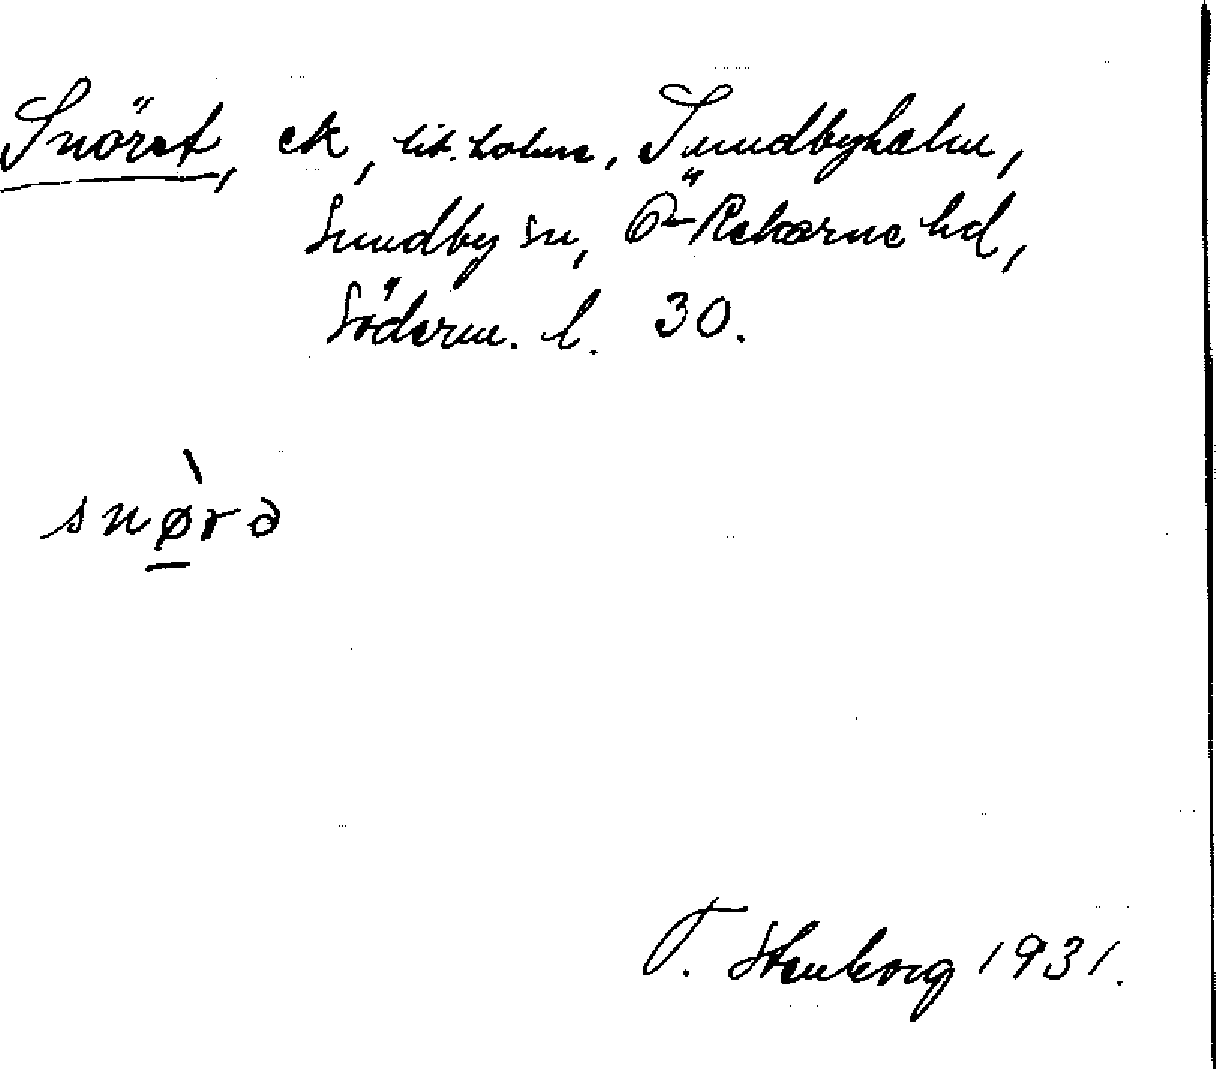 Snöret, ek, lit. holme, Sundbyholm,
Sundby sn, Ö-Rekarne hd,
Söderm. l. 30.
snø̀rə
T. Stenborg 1931.